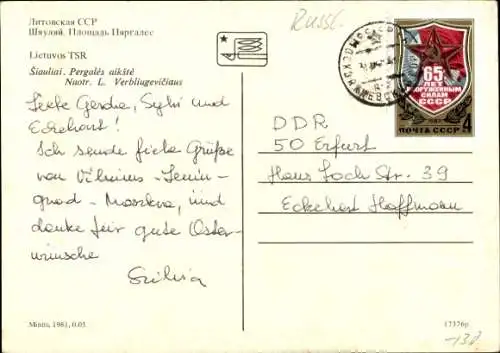 Литовская ССР
Шяуляй. Площадь Пяргалес
Lietuvos TSR
Šiauliai. Pergalės aikštė
Nuotr. L. Verbliugevičiaus
Liebe Gerda, Sylvi und
Eckehart!
Ich sende viele Grüße
von Vilnius - Lenin-
grad - Moskva, und
danke für gute Oster-
wünsche
Silvia
Mintis, 1981, 0.05.
Russl.
65
ЛЕТ
ВООРУЖЕННЫМ
СИЛАМ
СССР
ПОЧТА СССР 4
DDR
50 Erfurt
Hans Loch Str. 39
Eckehart Hoffmann
17376p.
-138